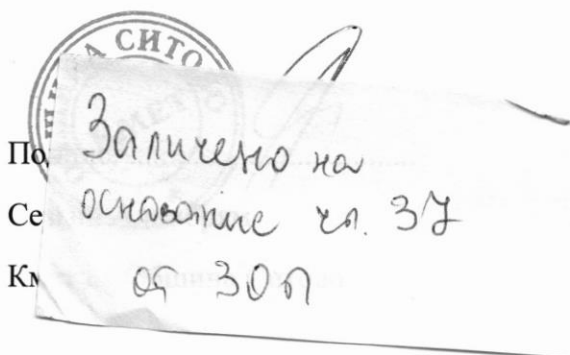 А СИТО
По
Се
Км
Заличено на
основание чл. 37
от ЗОП